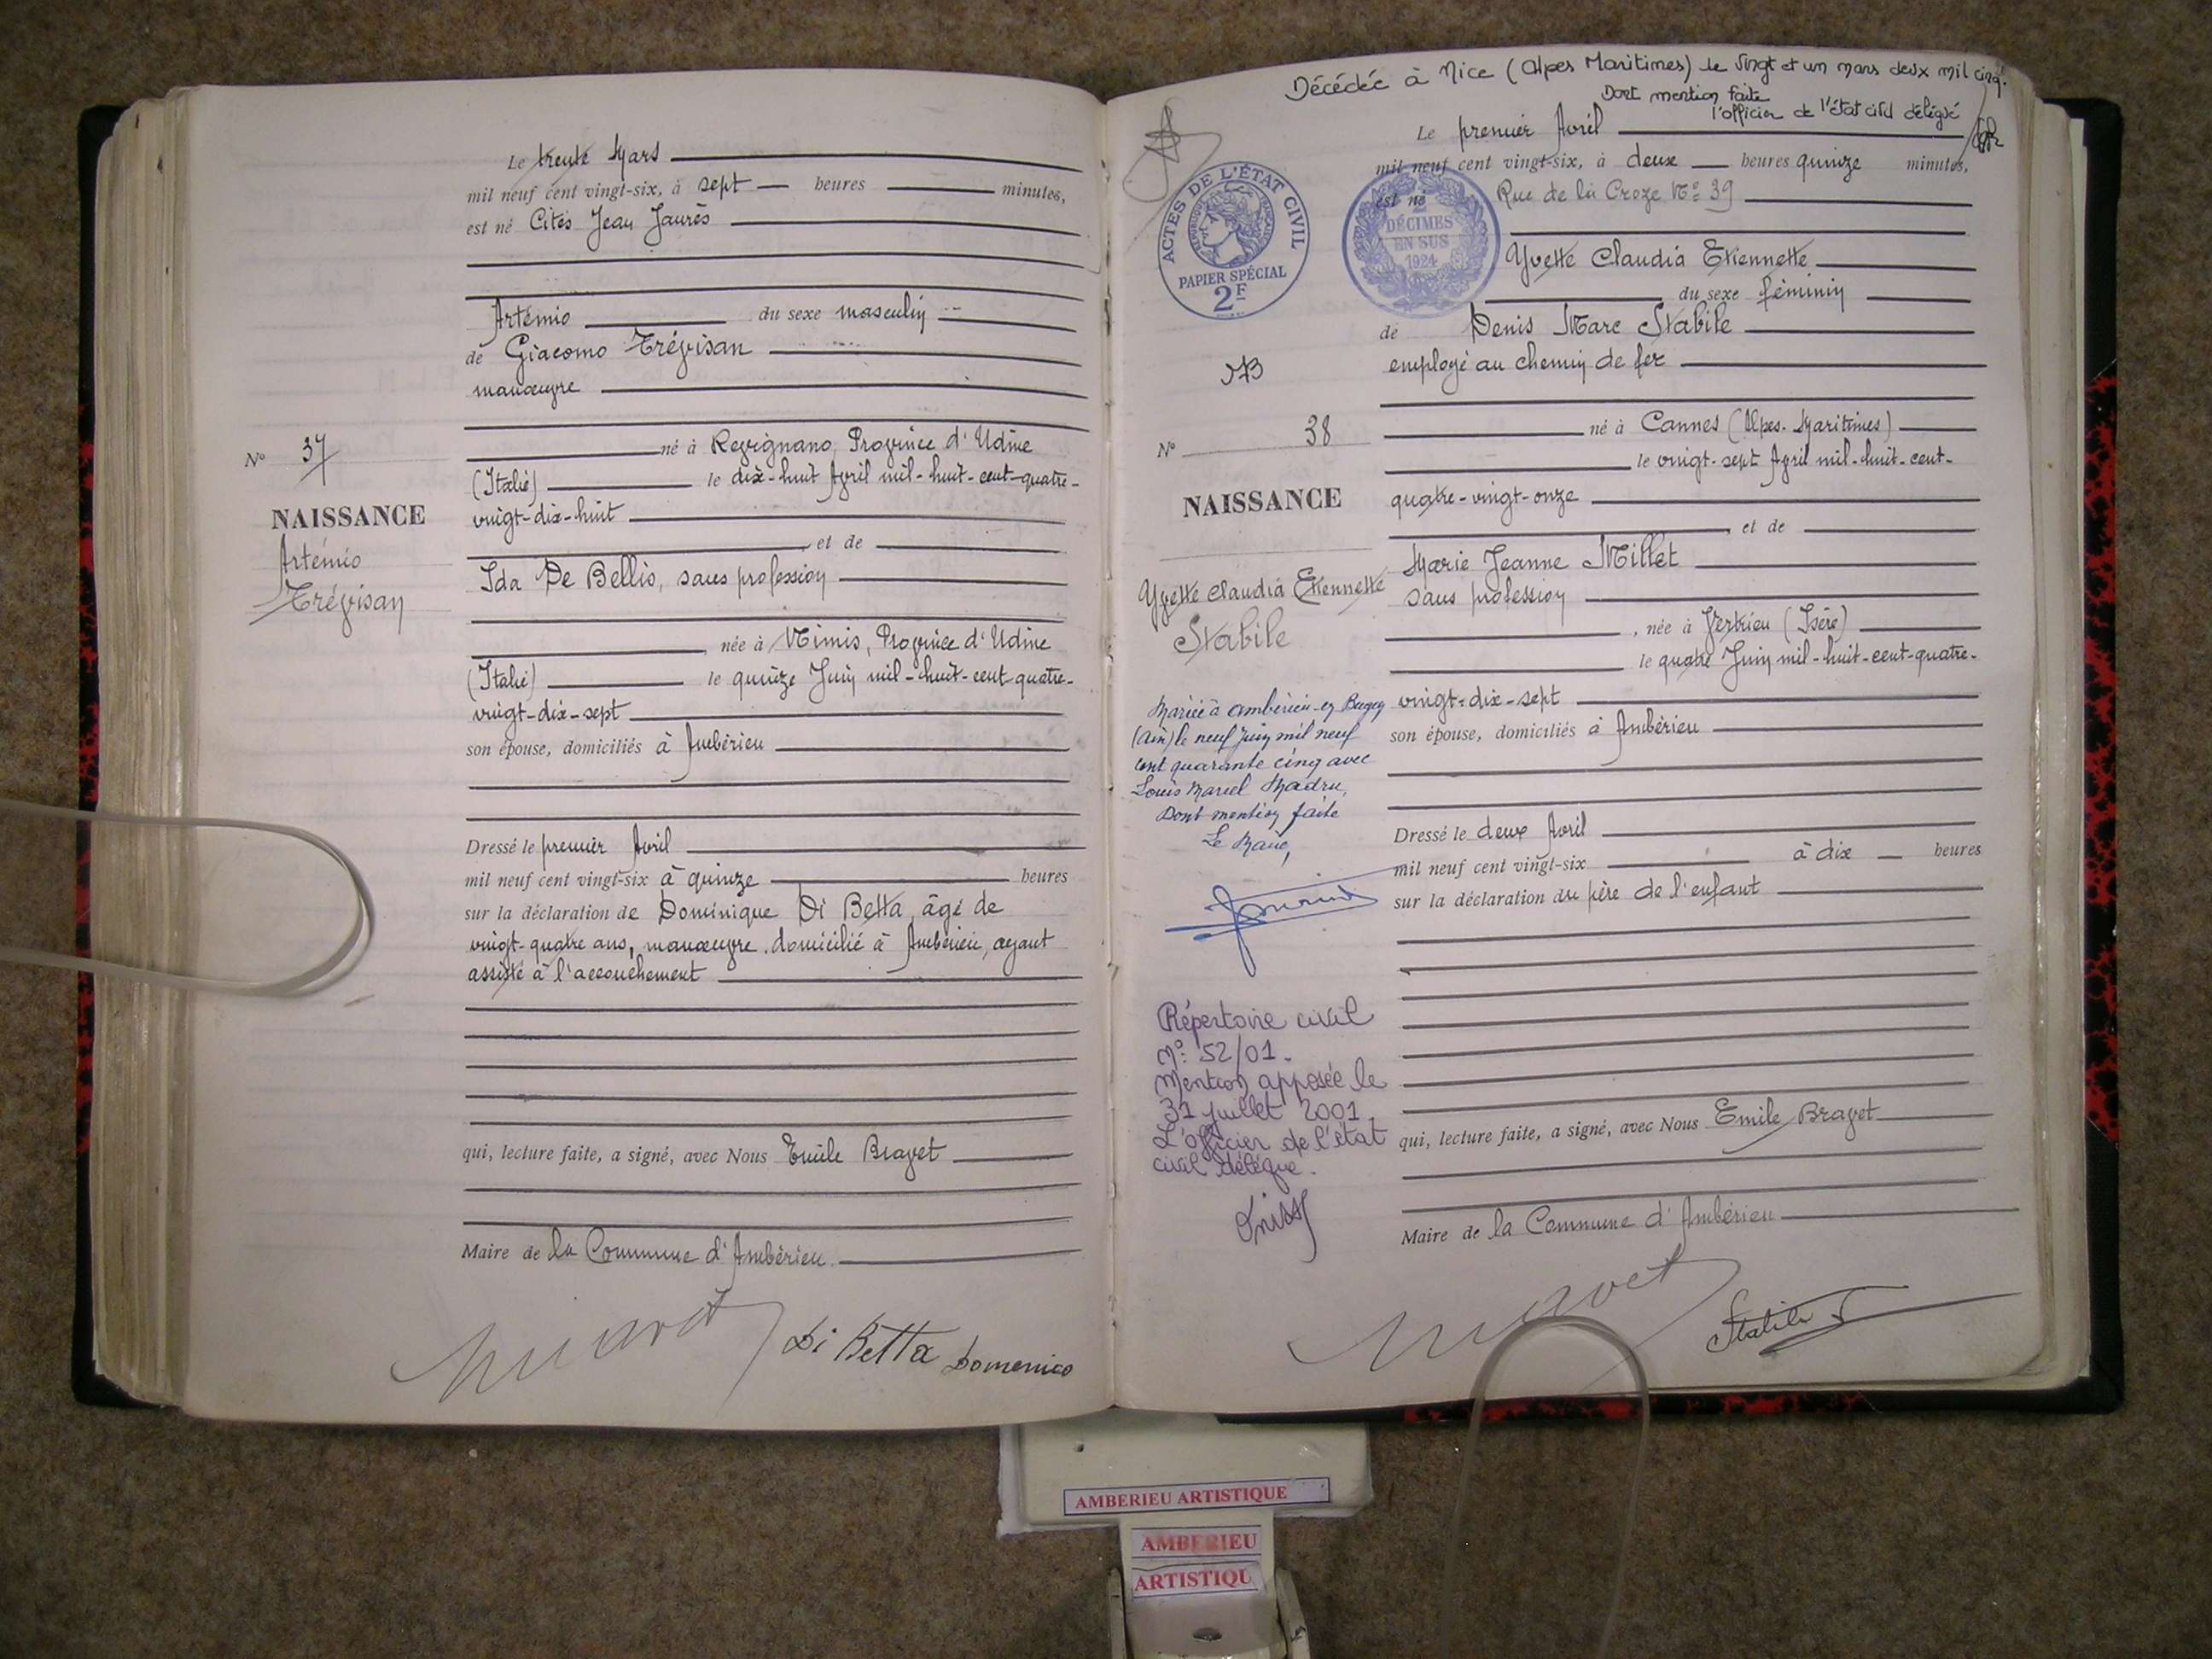 Le trente Mars
mil neuf cent vingt-six, à sept heures minutes,
est né Cités Jean Jaurès
Artémio du sexe masculin
de Giacomo Trévisan
manœuvre
né à Revignano, Province d'Udine
(Italie) le dix-huit Avril mil-huit-cent-quatre-
vingt-dix-huit
et de
Ida De Bellis, sans profession
née à Nimis, Province d'Udine
(Italie) le quinze Juin mil-huit-cent quatre-
vingt-dix-sept
son épouse, domiciliés à Ambérieu
Dressé le premier Avril
mil neuf cent vingt-six à quinze heures
sur la déclaration de Dominique Di Betta, âgé de
vingt-quatre ans, manœuvre, domicilié à Ambérieu, ayant
assisté à l'accouchement
qui, lecture faite, a signé, avec Nous Emile Bravet
Maire de la Commune d'Ambérieu.
Di Betta Domenico
N° 37
NAISSANCE
Artémio
Trévisan
Décédée à Nice (Alpes Maritimes) le vingt et un mars deux mil cinq.
Dont mention faite
l'officier de l'état civil délégué
Le premier Avril
mil neuf cent vingt-six, à deux heures quinze minutes,
est né Rue de la Croze N° 39
Yvette Claudia Etiennette
du sexe féminin
de Denis Marc Stabile
employé au chemin de fer
né à Cannes (Alpes-Maritimes)
le vingt-sept Avril mil-huit-cent-
quatre-vingt-onze
et de
Marie Jeanne Millet
sans profession
, née à Vertrieu (Isère)
le quatre Juin mil-huit-cent-quatre-
vingt-dix-sept
son épouse, domiciliés à Ambérieu
Dressé le deux Avril
mil neuf cent vingt-six à dix heures
sur la déclaration du père de l'enfant
qui, lecture faite, a signé, avec Nous Emile Bravet
Maire de la Commune d'Ambérieu
Bravet
Stabile
ACTES DE L'ÉTAT CIVIL
RÉPUBLIQUE FRANÇAISE
PAPIER SPÉCIAL
2F
2
DÉCIMES
EN SUS
1924
N° 38
NAISSANCE
Yvette Claudia Etiennette
Stabile
Mariée à Ambérieu-en Bugey
(Ain) le neuf Juin mil neuf
cent quarante cinq avec
Louis Marcel Madru,
Dont mention faite
Le Maire,
Répertoire civil
N° 52/01.
Mention apposée le
31 juillet 2001.
L'officier de l'état
civil délégué.
AMBERIEU ARTISTIQUE
AMBERIEU
ARTISTIQU